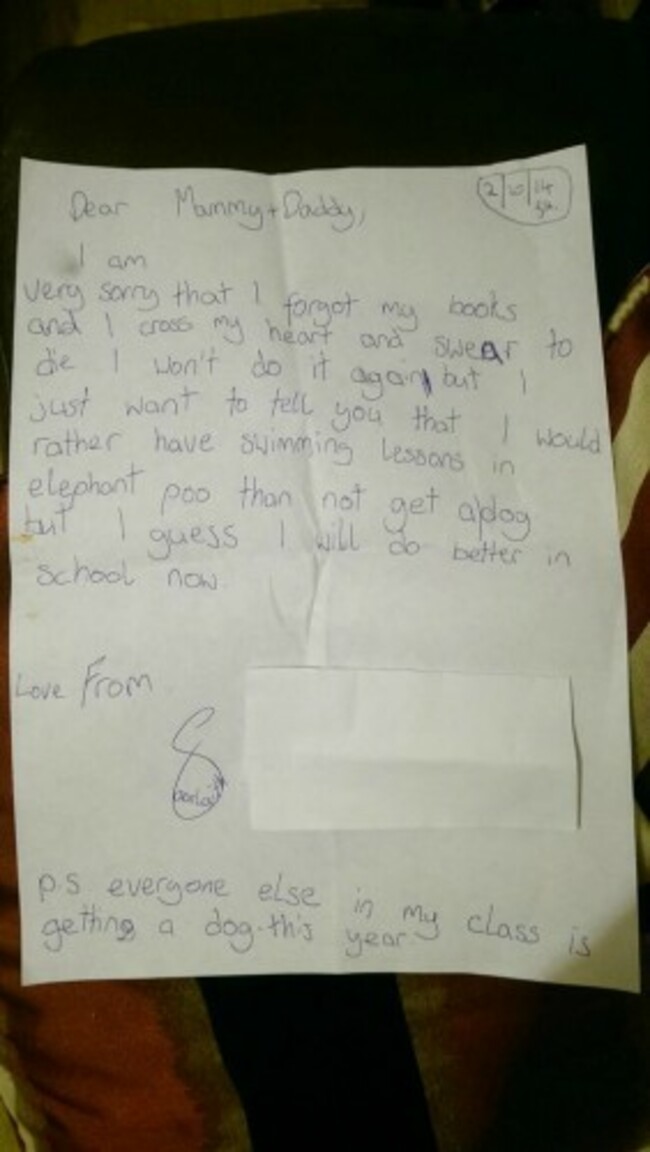 Dear Mammy + Daddy,
2|10|14
I am
very sorry that I forgot my books
and I cross my heart and swear to
die I won't do it again but I
just want to tell you that I would
rather have swimming lessons in
elephant poo than not get a dog
but I guess I will do better in
school now.
Love From
p.s everyone else in my class is
getting a dog this year.